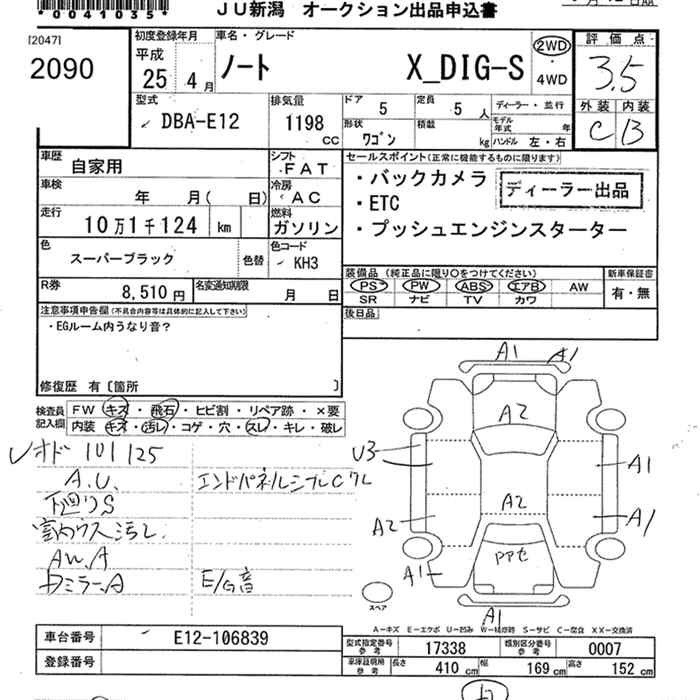 *0041035*
JU新潟 オークション出品申込書
[2047]
2090
初度登録年月
平成
25年 4月
車名・グレード
ノート X_DIG-S
2WD
・
4WD
評価点
3.5
外装 内装
C B
型式
DBA-E12
排気量
1198 cc
ドア 5
定員 5 人
形状 ワゴン
積載 kg
ディーラー・並行
モデル年式 年
ハンドル 左・右
車歴 自家用
シフト FAT
車検 年 月( 日)
冷房 AC
走行 10万1千124 km
燃料 ガソリン
色 スーパーブラック 色替
色コード KH3
R券 8,510円
名変通知期限 月 日
セールスポイント(正常に機能するものに限ります)
・バックカメラ
ディーラー出品
・ETC
・プッシュエンジンスターター
装備品 (純正品に限り○をつけてください)
PS PW ABS エアB AW
SR ナビ TV カワ
新車保証書
有・無
後日品
注意事項申告欄(不具合内容等は具体的に記入して下さい)
・EGルーム内うなり音?
修復歴 有〔箇所 〕
検査員記入欄
FW キズ・飛石・ヒビ割・リペア跡・×要
内装 キズ・汚レ・コゲ・穴・スレ・キレ・破レ
オド 101125
A.U.
下廻りS
エンドパネルシブレCワレ
室内ウス汚レ
AW.A
ミラーA
E/G音
A1 A1
A2
U3
A1
A2
A2
A1
A1
A1
スペア
A－キズ E－エクボ U－凹み W－補修跡 S－サビ C－腐食 XX－交換済
車台番号 E12-106839
登録番号
型式指定番号 参考 17338
類別区分番号 参考 0007
車庫証明用 参考 長さ 410 cm 幅 169 cm 高さ 152 cm